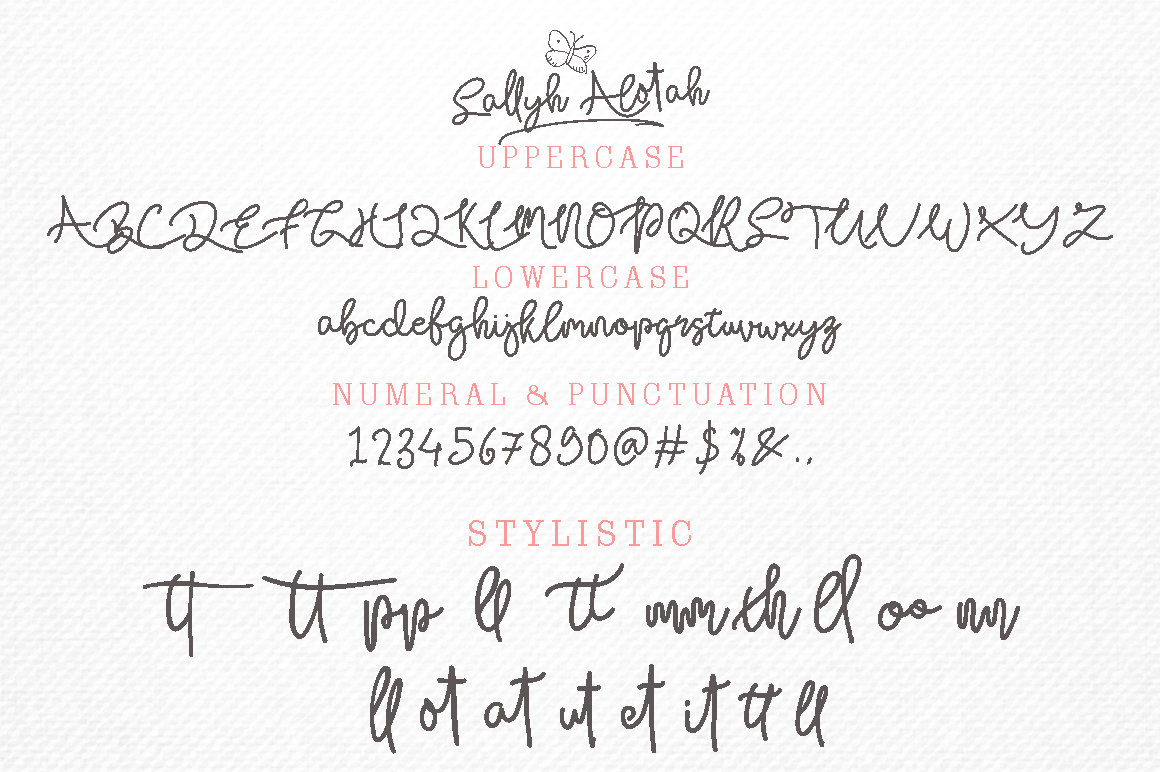 Sallyh Alotah
UPPERCASE
ABCDEFGHIJKLMNOPQRSTUVWXYZ
LOWERCASE
abcdefghijklmnopqrstuvwxyz
NUMERAL & PUNCTUATION
1234567890@#$%&.,
STYLISTIC
tt tt pp ll tt mm th ll oo nn
ll ot at ut et it tt ll